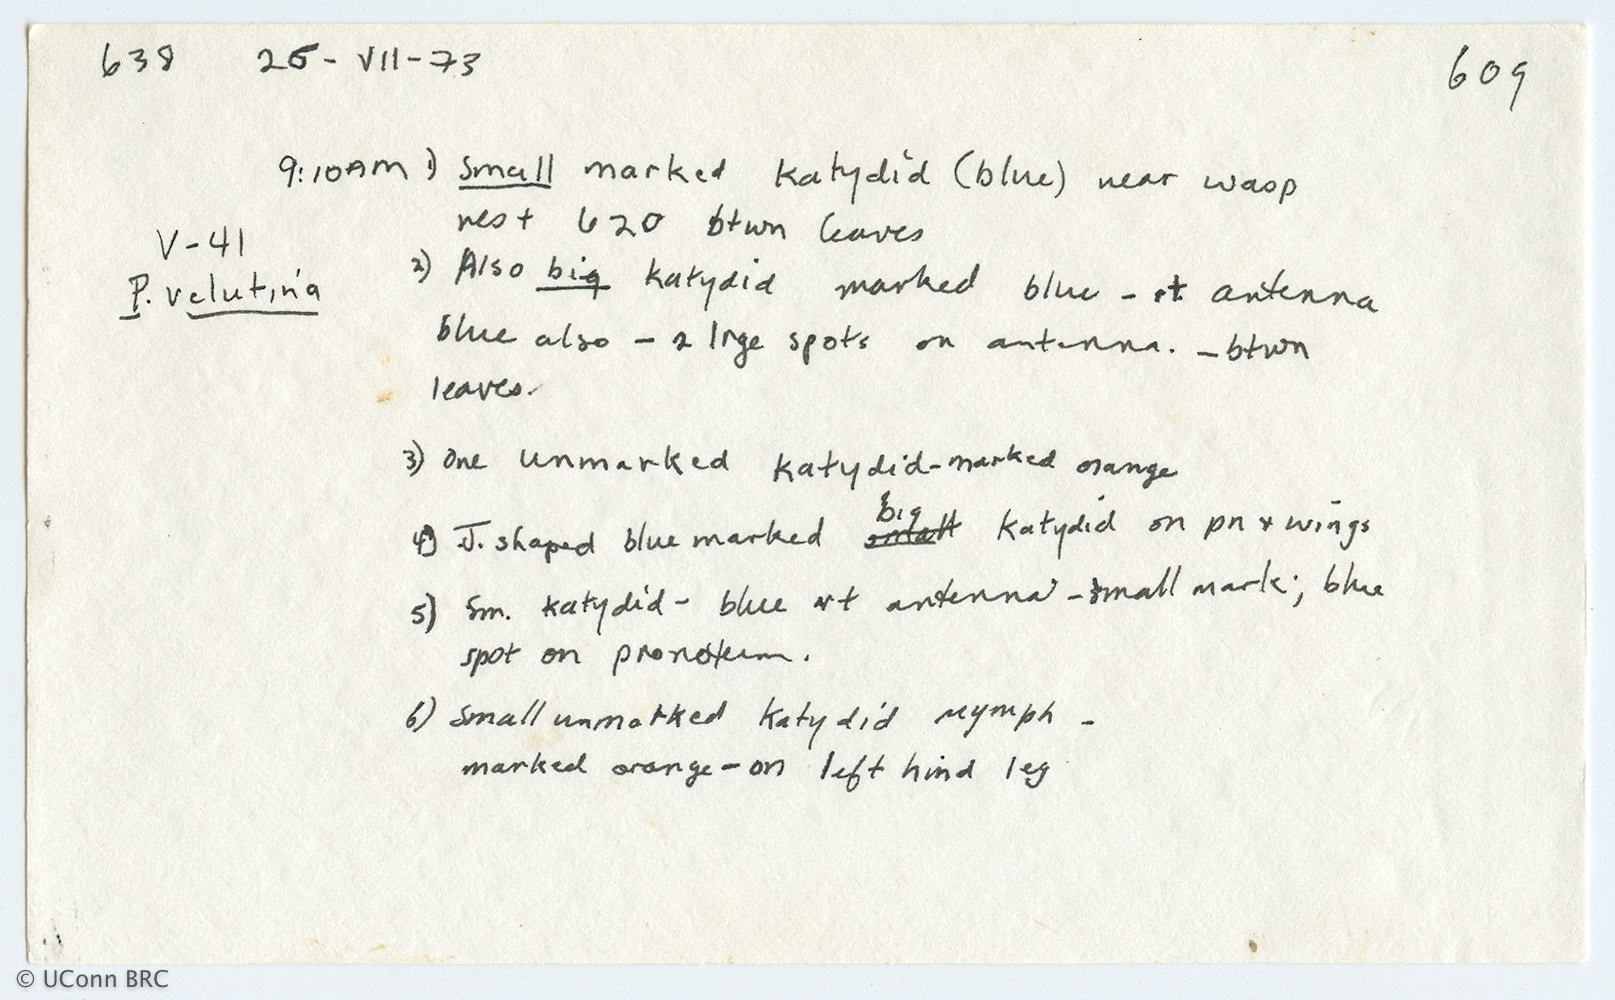 638 25-VII-73 609
9:10AM 1) small marked katydid (blue) near wasp
nest 620 btwn leaves
V-41
P. velutina
2) Also big katydid marked blue - rt antenna
blue also - 2 lrge spots on antenna. - btwn
leaves.
3) One unmarked katydid-marked orange
big
4) J. shaped blue marked small katydid on pn + wings
5) Sm. katydid - blue rt antenna - small mark; blue
spot on pronotum.
6) small unmarked katydid nymph -
marked orange - on left hind leg
© UConn BRC